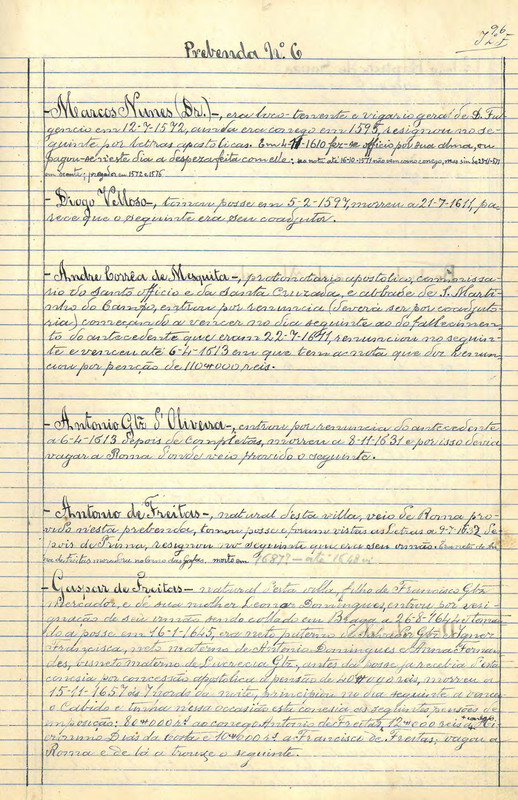 96
Prebenda Nº 6
- Marcos Nunes (Dr.) -, era loco-tenente e vigario geral de D. Ful-
gencio em 12-7-1572, ainda era conego em 1595, resignou no se-
guinte por letras apostolicas. Em 4-11-1610 fez-se officio por sua alma, ou
pagou-se neste dia a despesa feita com elle.;
em 1572 e 1575
- Diogo Velloso -, tomou posse em 5-2-1597, morreu a 21-7-1611, pa-
rece que o seguinte era seu coadjutor.
- Andre Corrêa de Mesquita -, protonotario apostolico, commissa-
rio do Santo Officio e da Santa Cruzada, e abbade de S. Marti-
nho do Campo, entrou por renuncia (deverá ser por coadjuto-
ria) começando a vencer no dia seguinte ao do fallecimen-
to do antecedente que eram 22-7-1611, renunciou no seguin-
te e venceu até 6-4-1613 em que tem a nota que diz Renun-
ciou por penção de 110#000 reis.
- Antonio Glz d'Oliveira -, entrou por renuncia do antecedente
a 6-4-1613 depois de Completas, morreu a 8-11-1631 e por isso devia
vagar a Roma donde veio provido o seguinte.
- Antonio de Freitas -, natural desta villa, veio de Roma pro-
vido nesta prebenda, tomou posse e foram vistas as Letras a 9-7-1632 de-
pois de Prima, resignou no seguinte que era seu irmão.
- Gaspar de Freitas - natural desta villa, filho de Francisco Glz
mercador, e de sua molher Leonor Domingues, entrou por resi-
gnação de seu irmão sendo collado em Braga a 26-8-1644 e toman-
do a posse em 16-1-1645, era neto paterno de Salvador Glz e Ignez
Francisca, neto materno de Antonio Domingues e Anna Fernan-
des, bisneto materno de Lucrecia Glz, antes da posse já recebia desta
conesia por concessão apostolica a pensão de 40#000 reis, morreu a
15-11-1657 ás 7 horas da noite, principiou no dia seguinte a vencer
o Cabido e tinha nesta occasião esta conesia as seguintes pensões de
imposição: 80#000 rs ao conego Antonio de Freitas, 12#000 reis a Je-
ronimo Dias da Costa e 10#000 rs a Francisca de Freitas; vagou a
Roma e de lá a trouxe o seguinte.